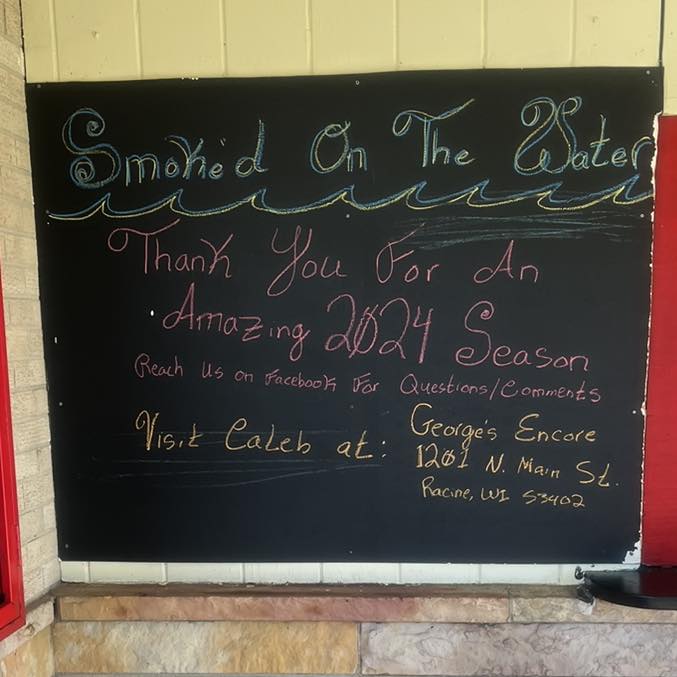 Smoke'd On The Water
Thank You For An
Amazing 2024 Season
Reach Us on Facebook For Questions/Comments
Visit Caleb at:
George's Encore
1201 N. Main St.
Racine, WI 53402